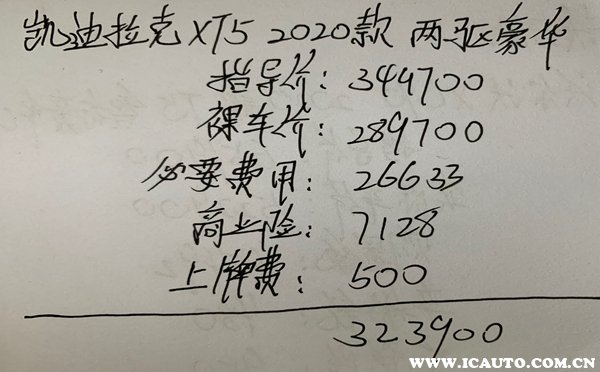 凯迪拉克XT5 2020款 两驱豪华
指导价：344700
裸车价：289700
必要费用：26633
商业险：7128
上牌费：500
323900
WWW.ICAUTO.COM.CN